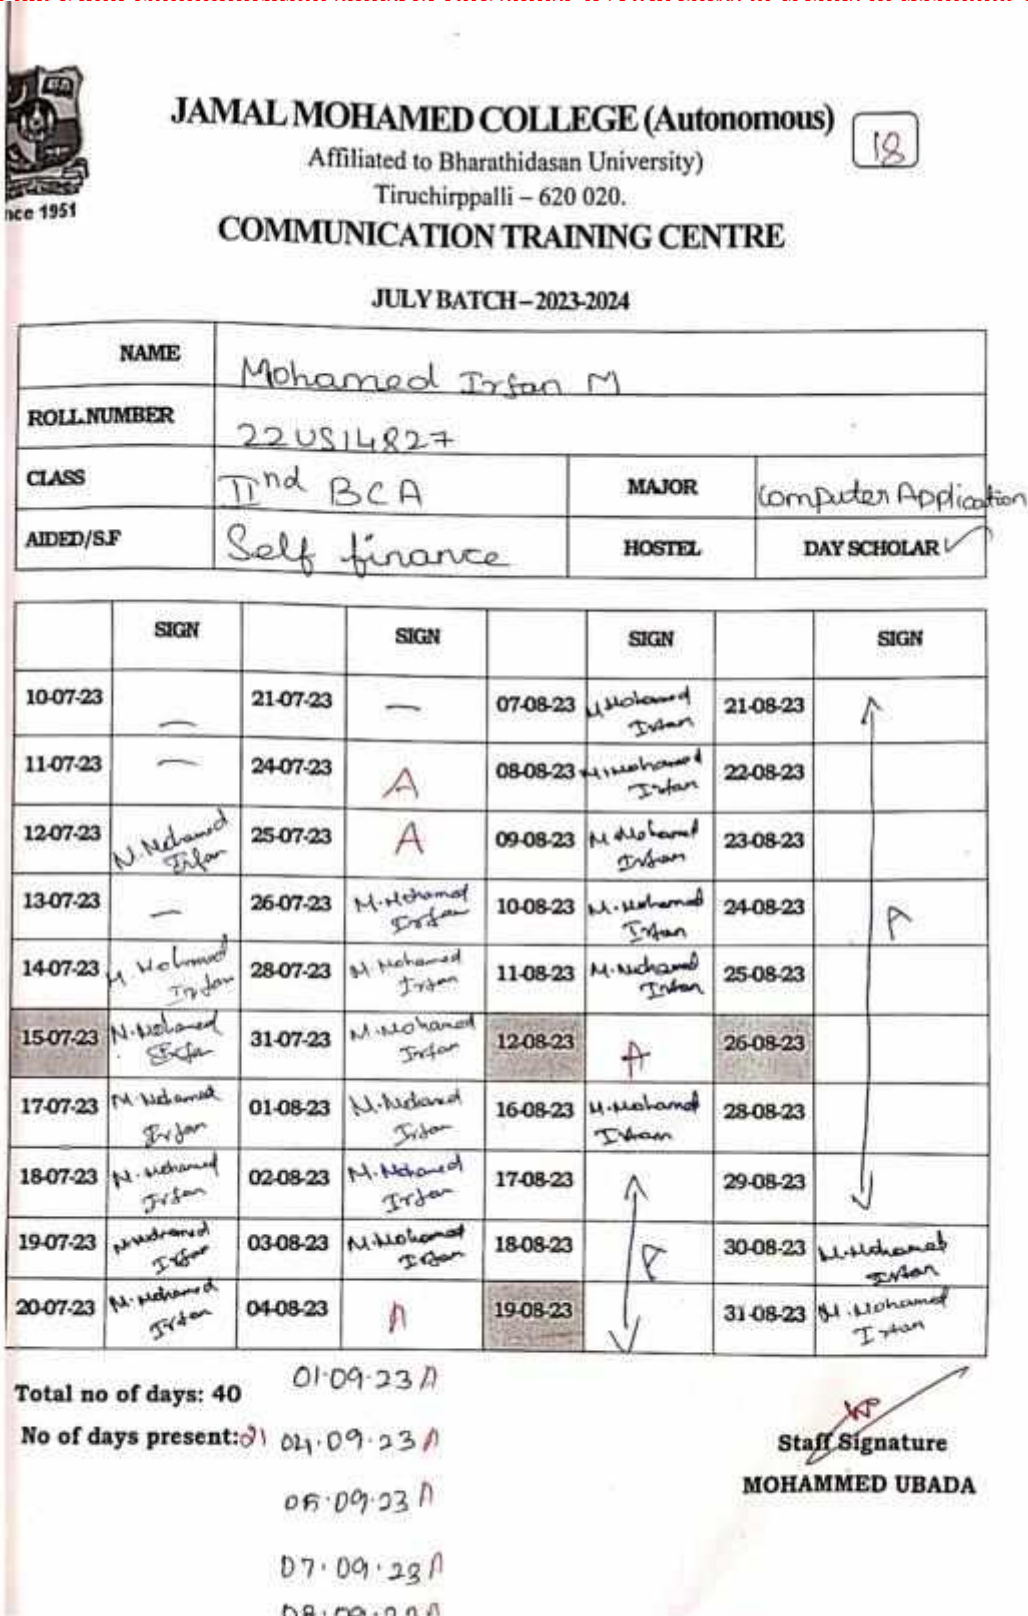 nce 1951
JAMAL MOHAMED COLLEGE (Autonomous)
18
Affiliated to Bharathidasan University)
Tiruchirppalli – 620 020.
COMMUNICATION TRAINING CENTRE
JULY BATCH – 2023-2024
NAME Mohamed Irfan M
ROLL.NUMBER 22US14827
CLASS IInd BCA MAJOR Computer Application
AIDED/S.F Self finance HOSTEL DAY SCHOLAR ✓
SIGN SIGN SIGN SIGN
10-07-23 — 21-07-23 — 07-08-23 M Mohamed Irfan 21-08-23
11-07-23 — 24-07-23 A 08-08-23 M. Mohamed Irfan 22-08-23
12-07-23 M. Mohamed Irfan 25-07-23 A 09-08-23 M Mohamed Irfan 23-08-23
13-07-23 — 26-07-23 M. Mohamed Irfan 10-08-23 M. Mohamed Irfan 24-08-23 A
14-07-23 M Mohamed Irfan 28-07-23 M Mohamed Irfan 11-08-23 M. Mohamed Irfan 25-08-23
15-07-23 M. Mohamed Irfan 31-07-23 M. Mohamed Irfan 12-08-23 A 26-08-23
17-07-23 M Mohamed Irfan 01-08-23 M. Mohamed Irfan 16-08-23 M. Mohamed Irfan 28-08-23
18-07-23 M. Mohamed Irfan 02-08-23 M. Mohamed Irfan 17-08-23 29-08-23
19-07-23 M. Mohamed Irfan 03-08-23 M. Mohamed Irfan 18-08-23 A 30-08-23 M. Mohamed Irfan
20-07-23 M. Mohamed Irfan 04-08-23 A 19-08-23 31-08-23 M. Mohamed Irfan
Total no of days: 40 01.09.23 A
No of days present: 21 04.09.23 A
Staff Signature
MOHAMMED UBADA
05.09.23 A
07.09.23 A